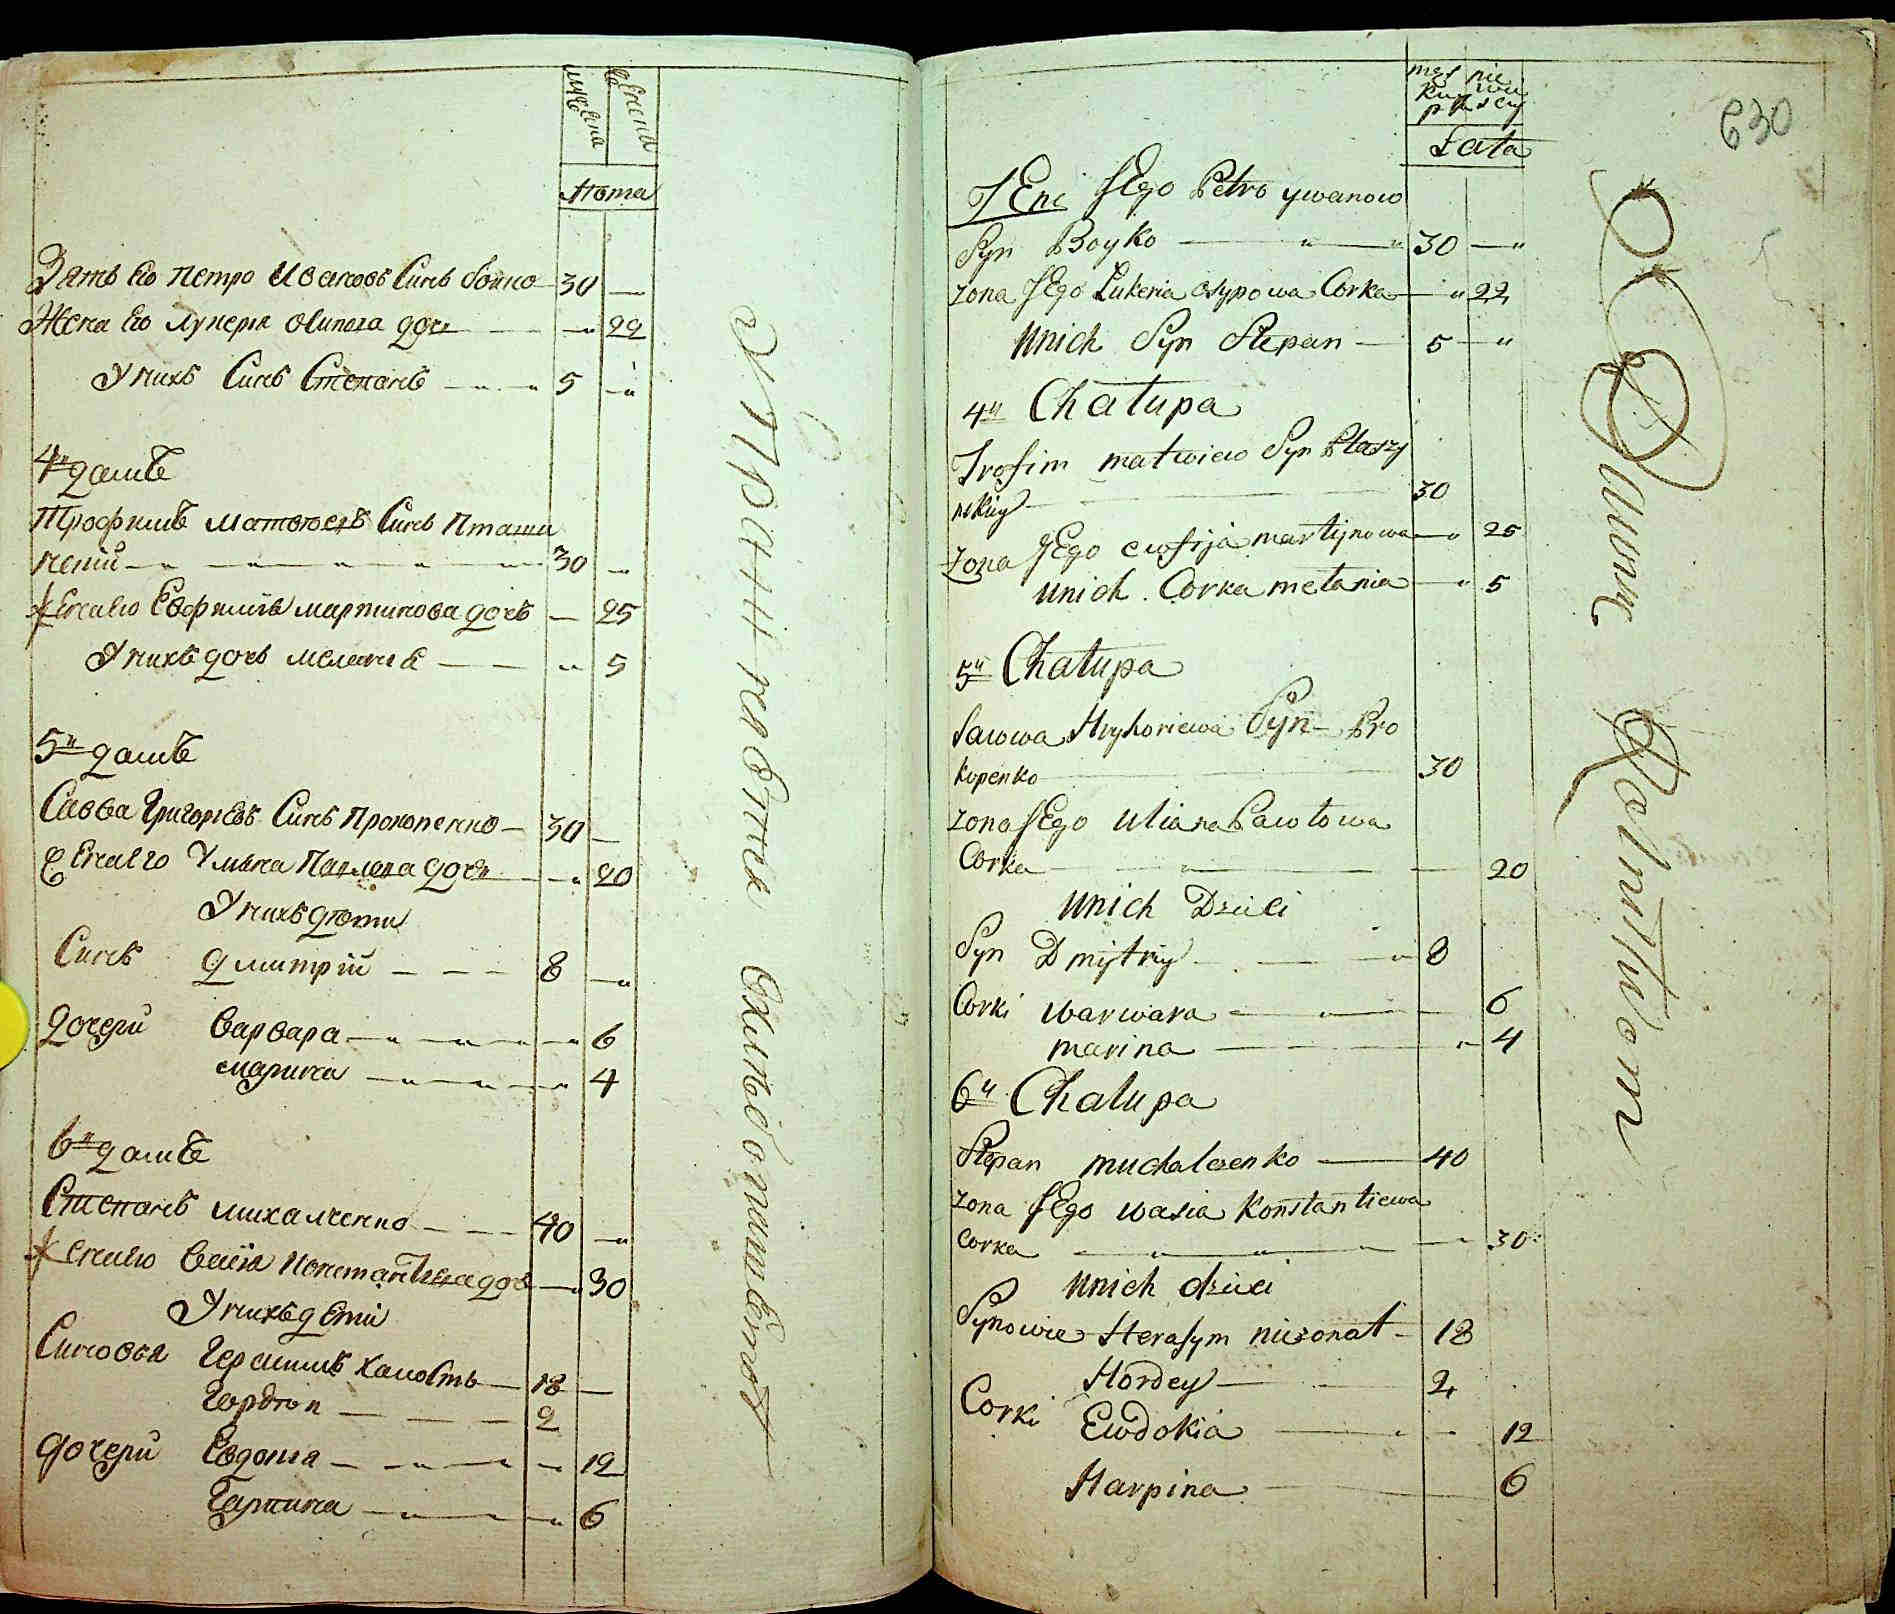 мужеска
женска
Лѣта
Зять Его Петро Ивановъ Синъ Бойко 30 —
Жена Его Лукерія Осипова дочь — 22
У нихъ Синъ Степанъ — 5 —
4й домъ
Трофимъ Матвѣевъ Синъ Пташи
нский — 30 —
Жена Его Евфимія Мартинова дочь — 25
У нихъ дочь Меланія — 5
5й домъ
Савва Григорієвъ Синъ Прокопенко — 30 —
Жена Его Уляна Павлова дочь — 20
У нихъ дѣти
Синъ Дмитрій — 8 —
Дочери Варвара — 6
Марина — 4
6й домъ
Степанъ Михалченко — 40 —
Жена Его Васія Констант дочь — 30
У нихъ дѣти
Синовья Герасимъ Холостъ — 18 —
Гордѣй — 2
дочери Евдокія — 12
Гарпина — 6
męs
kie
płci
Lata
630
JEnc JEgo Petro ywanow
Syn Boyko — 30 —
zona JEgo Lukeria osypowa Corka — 22
Unich Syn Stepan — 5 —
4ta Chałupa
Trofim matwiew Syn Ptaszy
nskiy — 30
zona JEgo ewfija martynowa — 25
Unich Corka mełania — 5
5ta Chałupa
Sawwa Hryhoriewa Syn Pro
kopenko — 30
zona JEgo Uliana Pawłowa
Corka — 20
Unich Dzieci
Syn Dmijtriy — 8
Corki warwara — 6
marina — 4
6ta Chałupa
Stepan muchalczenko — 40
zona JEgo wasia Konstantiewa
Corka — 30
Unich dzieci
Synowie Herasym niezonat — 18
Hordey — 2
Corki Ewdokia — 12
Harpina — 6